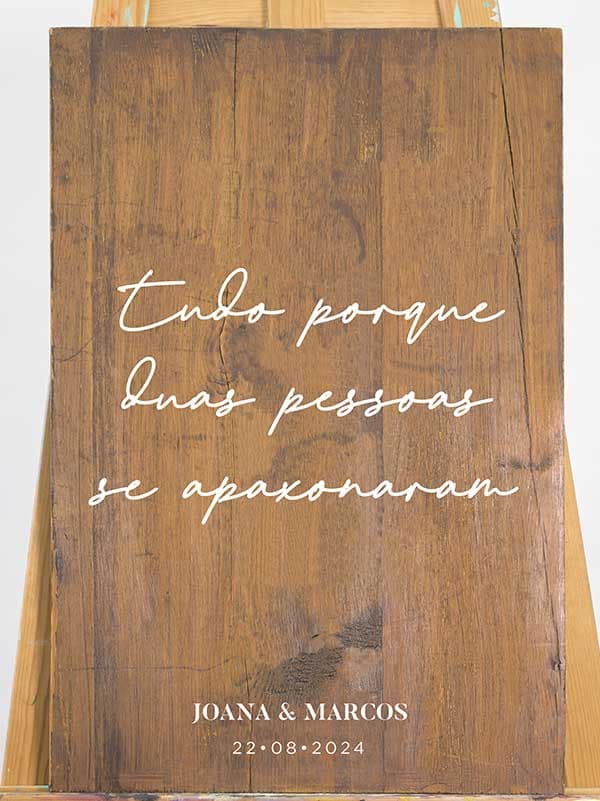 tudo porque
duas pessoas
se apaxonaram
JOANA & MARCOS
22•08•2024